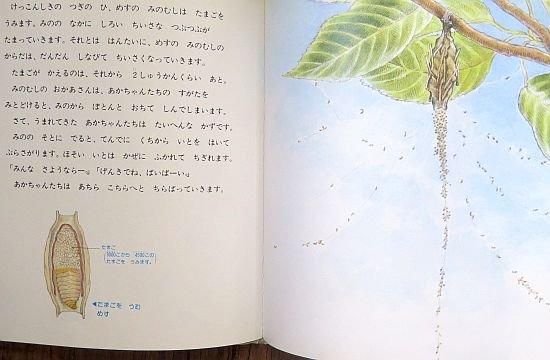 けっこんしきの つぎの ひ、めすの みのむしは たまごを
うみます。みのの なかに しろい ちいさな つぶつぶが
たまっていきます。それとは はんたいに、めすの みのむしの
からだは、だんだん しなびて ちいさくなっていきます。
たまごが かえるのは、それから 2しゅうかんくらい あと。
みのむしの おかあさんは、あかちゃんたちの すがたを
みとどけると、みのから ぽとんと おちて しんでしまいます。
さて、うまれてきた あかちゃんたちは たいへんな かずです。
みのの そとに でると、てんでに くちから いとを はいて
ぶらさがります。ほそい いとは かぜに ふかれて ちぎれます。
「みんな さようならー」「げんきでね、ばいばーい」
あかちゃんたちは あちら こちらへと ちらばっていきます。
たまご
1000こから 4500この
たまごを うみます。
◀たまごを うむ
めす